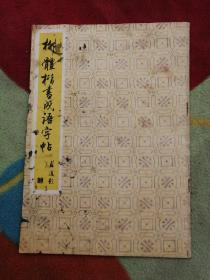 柳體楷書成语字帖